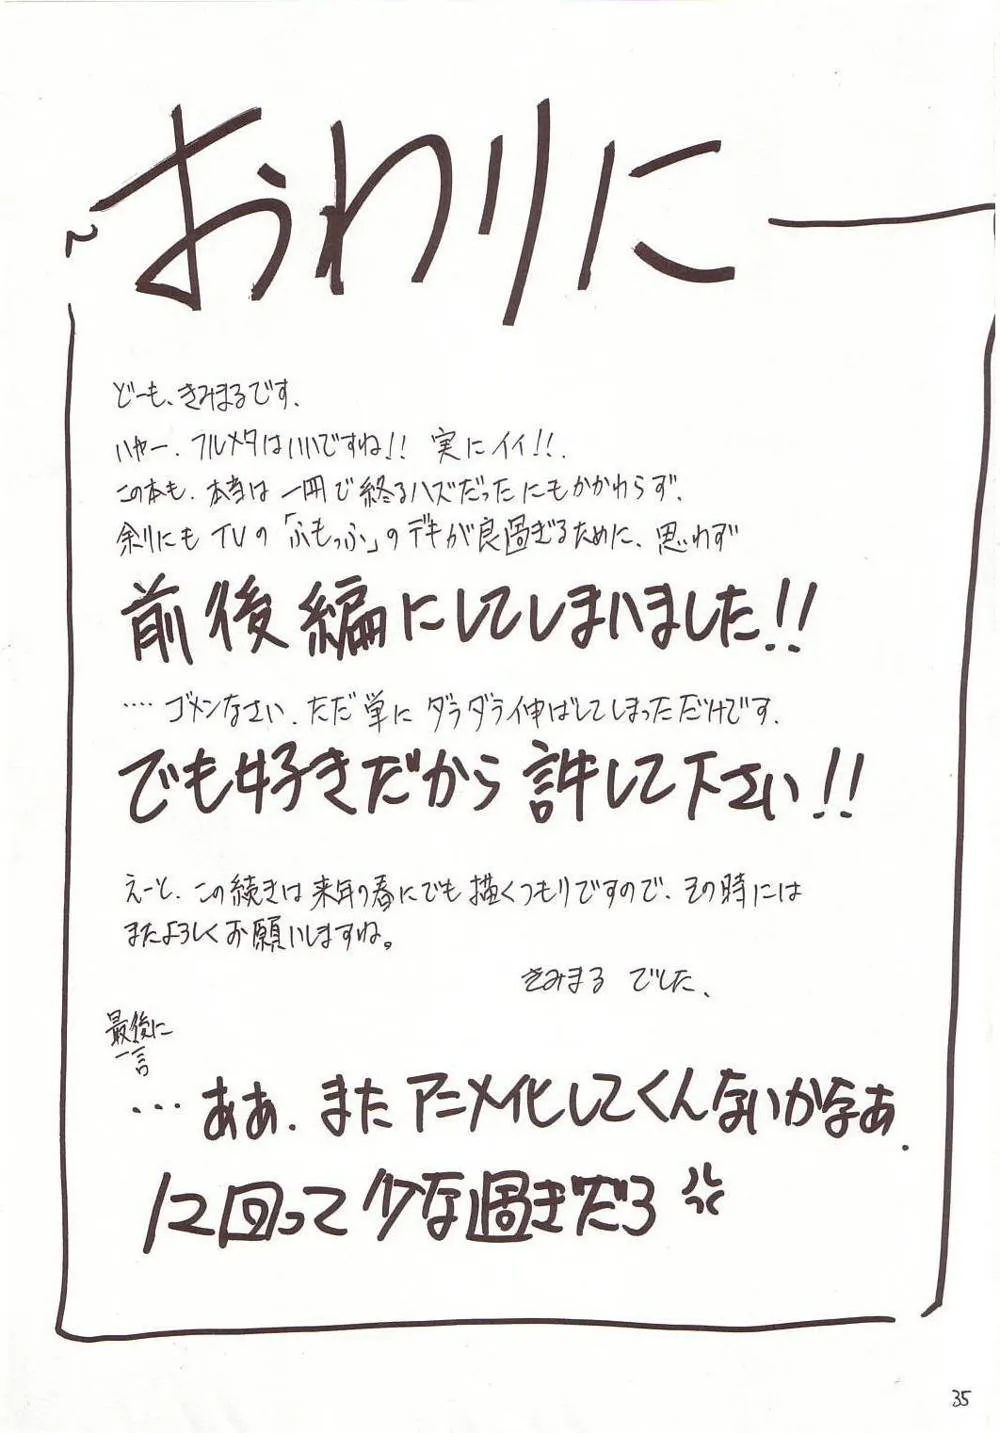 おわりにー
どーも、きみまるです、
ハヤー、フルメタはいいですね!! 実にイイ!!、
この本も、本当は一冊で終るハズだったにもかかわらず、
余りにもTVの「ふもっふ」のデキが良過ぎるために、思わず
前後編にしてしまいました!!
‥‥ゴメンなさい、ただ単にダラダラ伸ばしてしまっただけです、
でも好きだから許して下さい!!
えーと、この続きは来年の春にでも描くつもりですので、その時には
またよろしくお願いしますね。
きみまる でした、
最後に
一言
…ああ、またアニメ化してくんないかなぁ、
12回って少な過ぎだろ
35